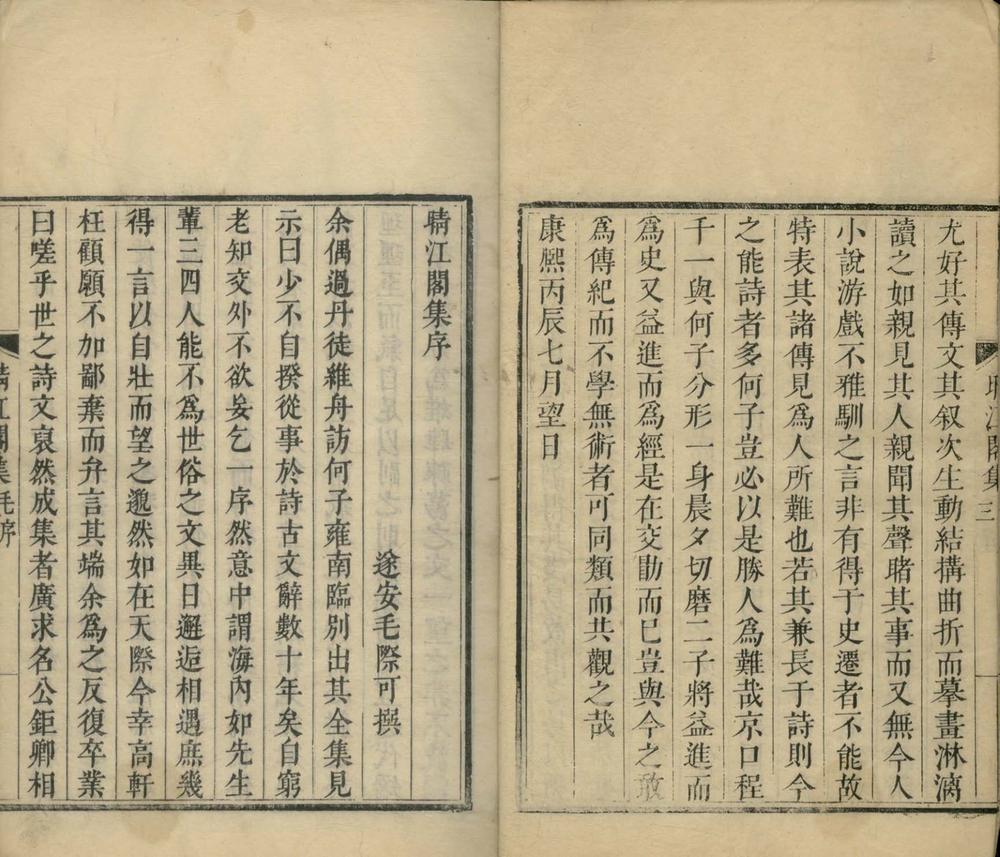 尤好其傳文其叙次生動結搆曲折而摹畫淋漓
讀之如親見其人親聞其聲睹其事而又無今人
小說游戲不雅馴之言非有得于史遷者不能故
特表其諸傳見為人所難也若其兼長于詩則今
之能詩者多何子豈必以是勝人為難哉京口程
千一與何子分形一身晨夕切磨二子將益進而
為史又益進而為經是在交勖而已豈與今之敢
為傳紀而不學無術者可同類而共觀之哉
康熙丙辰七月望日
江閣集 三
晴江閣集序
遂安毛際可撰
余偶過丹徒維舟訪何子雍南臨別出其全集見
示曰少不自揆從事於詩古文辭數十年矣自窮
老知交外不欲妄乞一序然意中謂海內如先生
輩三四人能不為世俗之文異日邂逅相遇庶幾
得一言以自壯而望之邈然如在天際今幸高軒
枉顧願不加鄙棄而弁言其端余為之反復卒業
曰嗟乎世之詩文裒然成集者廣求名公鉅卿相
晴江閣集 毛序